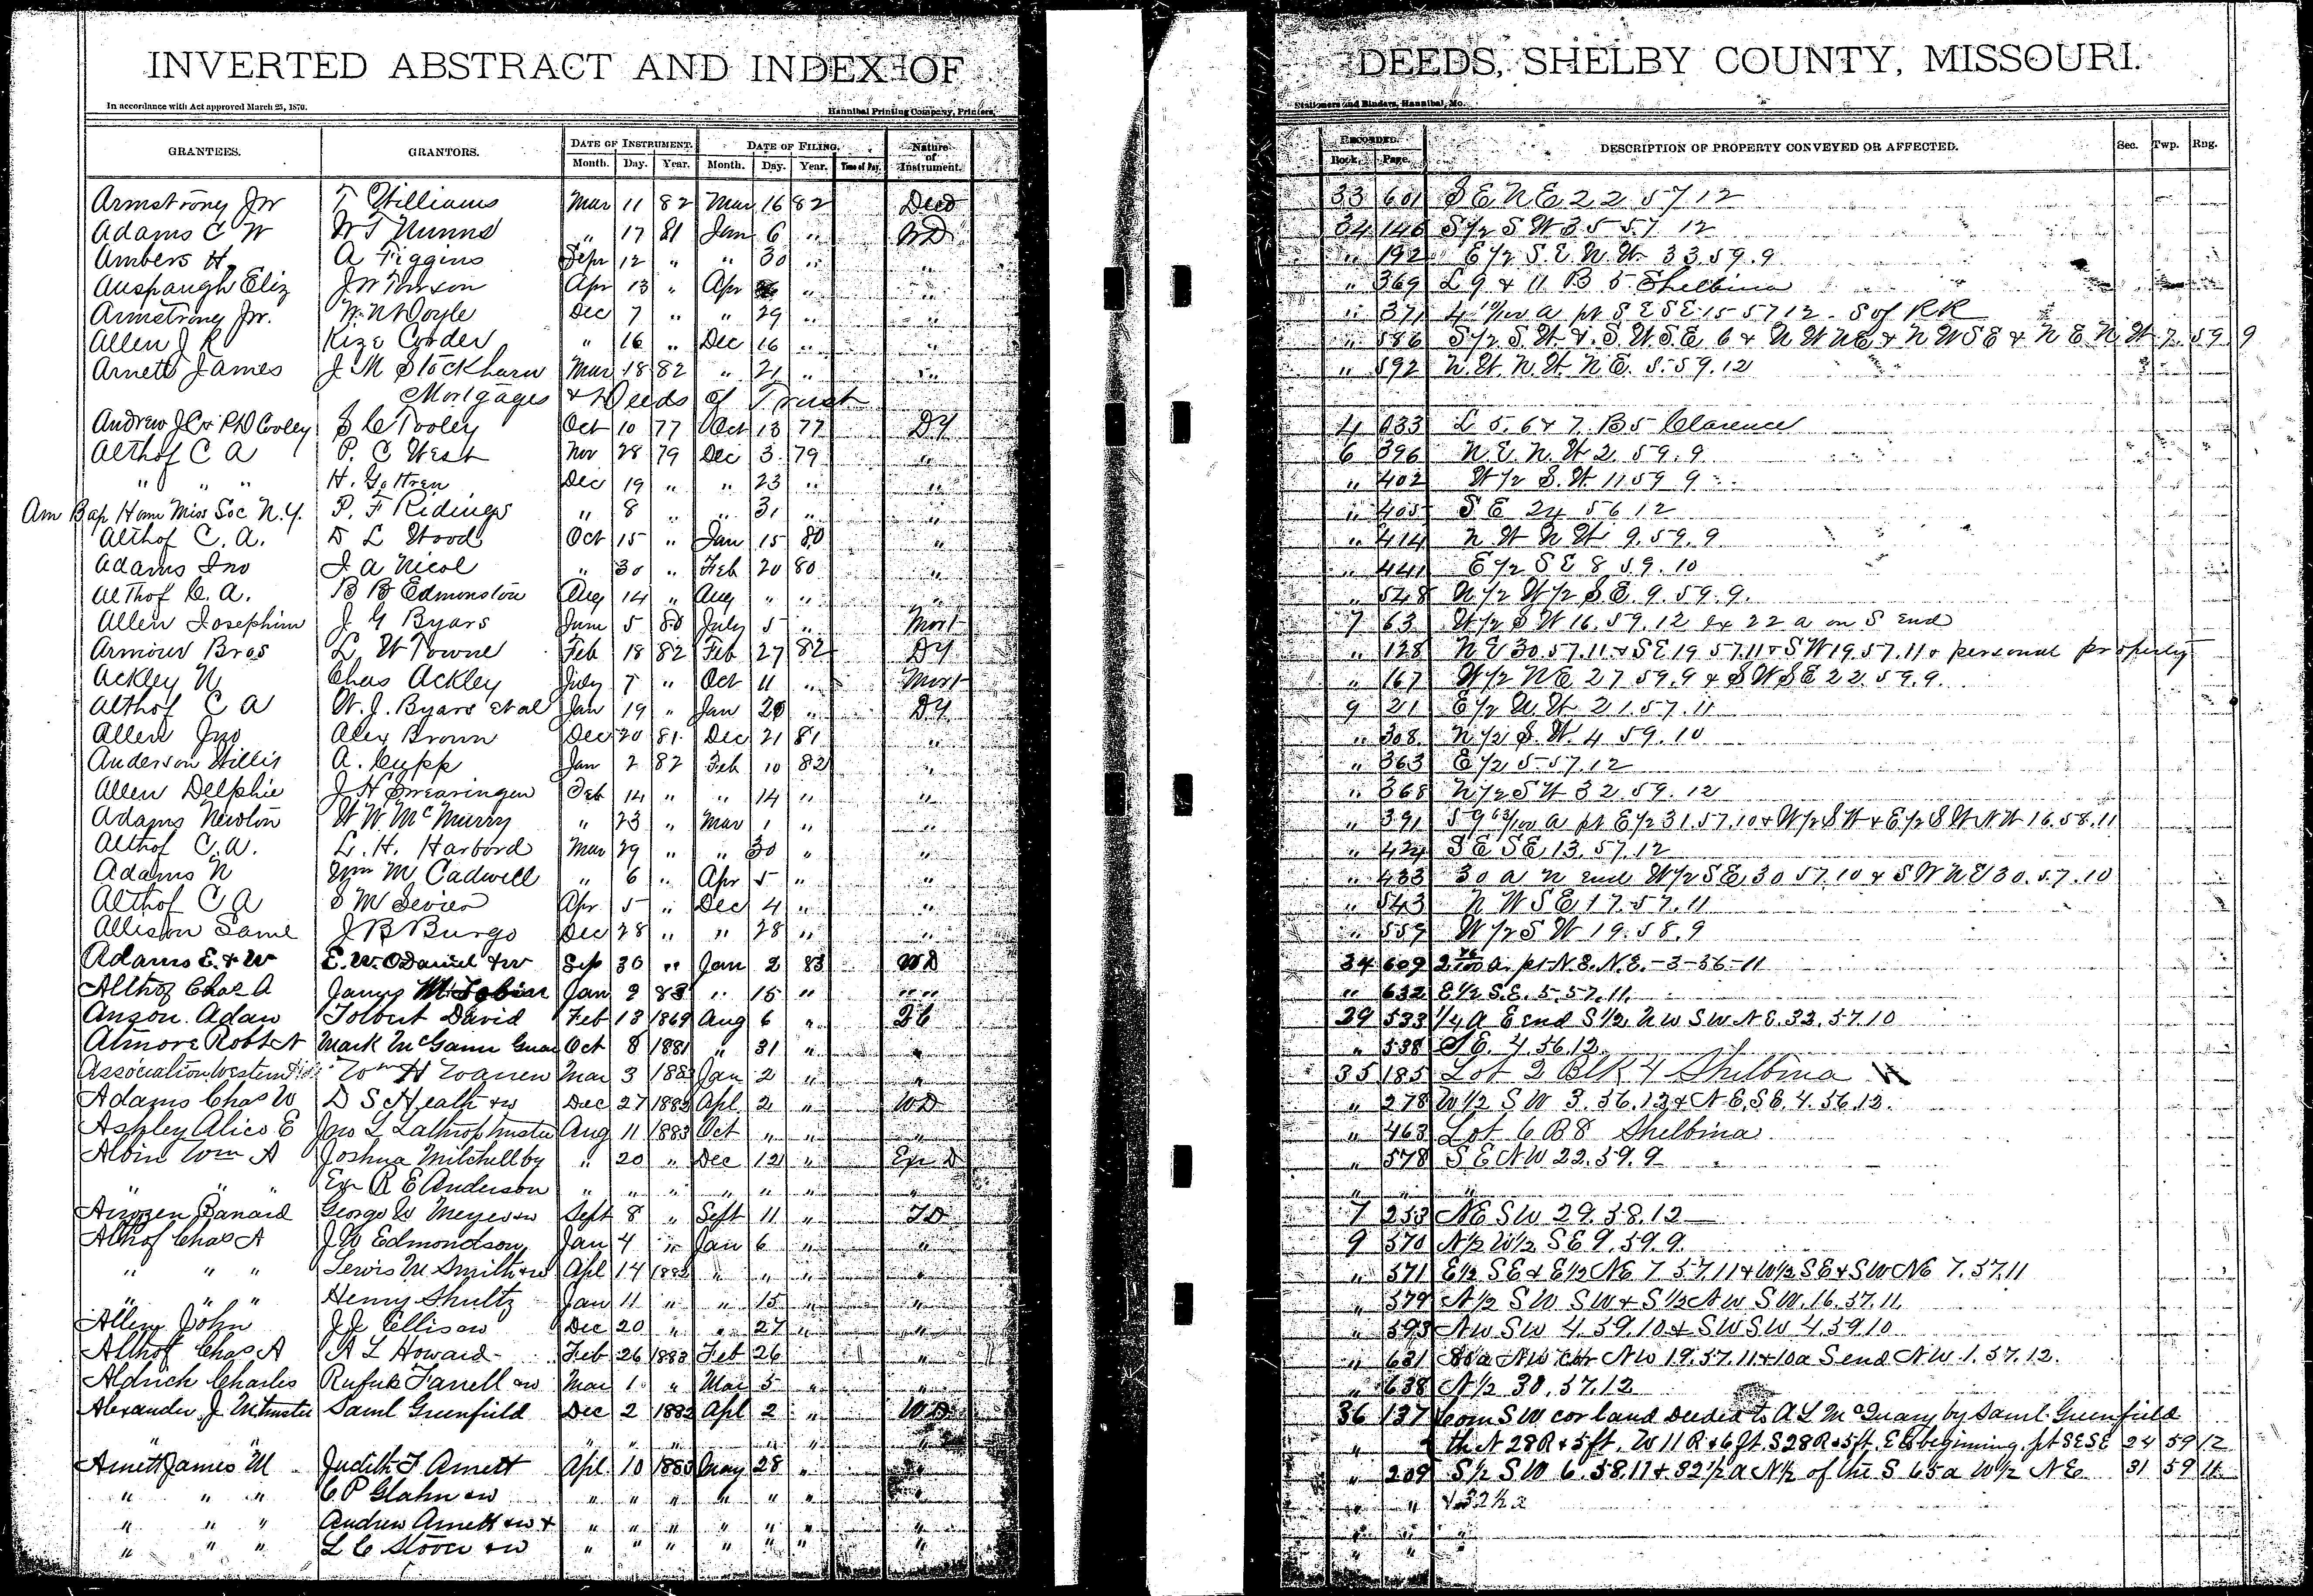 INVERTED ABSTRACT AND INDEX OF DEEDS, SHELBY COUNTY, MISSOURI.
In accordance with Act approved March 25, 1870. Hannibal Printing Company, Printers, Stationers and Binders, Hannibal, Mo.
GRANTEES. GRANTORS. DATE OF INSTRUMENT. DATE OF FILING. Nature of Instrument. RECORDED. DESCRIPTION OF PROPERTY CONVEYED OR AFFECTED. Sec. Twp. Rng.
Month. Day. Year. Month. Day. Year. Time of Day. Book. Page.
Armstrong Jw T Williams Mar 11 82 Mar 16 82 Deed 33 601 S E N E 22 57 12
Adams C W W T Nunns " 17 81 Jan 6 " WD 34 146 S 1/2 S W 35 57 12
Ambers H A Figgins Sepr 12 " " 30 " " " 192 E 1/2 S.E. N.W. 33.59.9
Auspaugh Eliz J W Apr 13 " Apr " " " 369 L 9 & 11 B 5 Shelbina
Armstrong Jw. W. N Doyle Dec 7 " " 29 " " " 371 4 10/100 a pt S E S E 15 57 12 S of RR
Allen J R Kize Corder " 16 " Dec 16 " " " 586 S 1/2 S.W. & S W S E 6 & N W NE & N W S E & N E N W 7. 59 9
Arnett James J. M Stockburn Mar 18 82 " 21 " " " 592 N.W. N.W. N E. 5.59.12
Mortgages & Deeds of Trust
Andrew J C & P D Cooley S C Tooley Oct 10 77 Oct 13 77 DT 4 633 L 5. 6 & 7. B 5 Clarence
Althof C A P. C West Nov 28 79 Dec 3 79 " 6 396 N E N.W 2. 59.9
" " " H. G. Dec 19 " " 23 " " " 402 W 1/2 S.W. 11 59 9
Am Bap Hom Miss Soc N.Y. P. F Ridings " 8 " " 31 " " " 405 S E 24 56 12
Althof C. A. D L Wood Oct 15 " Jan 15 80 " " 414 N W N W 9. 59. 9
Adams Jno J. A Nicol " 30 " Feb 20 80 " " 441 E 1/2 S E 8 59. 10
Althof C. A. B B Edmonston Aug 14 " Aug " " " " 548 N 1/2 W 1/2 S E. 9. 59. 9.
Allen Josephine J G Byars June 5 80 July 5 " Mort 7 63 W 1/2 S W 16. 59. 12 ex 22 a on S End
Armour Bros L. W Towne Feb 18 82 Feb 27 82 DT " 128 N E 30.57.11 & S E 19 57.11 & S W 19.57.11 & personal property
Ackley N Chas Ackley July 7 " Oct 11 " Mort " 167 W 1/2 N E 27 59.9 & S W S E 22 59.9.
Althof C A W. J. Byars et al Jan 19 " Jan 20 " DT 9 21 E 1/2 N W 21.57.11
Allen Jno Alex Brown Dec 20 81 Dec 21 81 " " 308 N 1/2 S. W. 4 59.10
Anderson Willis A. Cupp Jan 2 82 Feb 10 82 " " 363 E 1/2 5-57.12
Allen Delphie J H Swearingen Feb 14 " " 14 " " " 368 N 1/2 S W 32 59. 12
Adams Newton W W McMurry " 23 " Mar 1 " " " 391 59 63/100 a pt E 1/2 31.57.10 & W 1/2 S W & E 1/2 S W N W 16.58.11
Althof C. A. L. H. Harbord Mar 29 " " 30 " " " 424 S E S E 13. 57. 12
Adams N Wm M Cadwell " 6 " Apr 5 " " " 433 30 a N End W 1/2 S E 30 57.10 & S W N E 30.57.10
Althof C A S M Sevier Apr 5 " Dec 4 " " " 543 N W S E 17.57.11
Allison Saml J B Burgo Dec 28 " " 28 " " " 559 W 1/2 S W 19. 58. 9
Adams E. & W E. W. O Daniel & w Sep 30 " Jan 2 83 WD 34 609 a. pt N. E. N. E. -3-56-11
Althof Chas A James M Tobin Jan 9 83 " 15 " " " 632 E 1/2 S. E. 5. 57. 11.
Anson Adam Tolbert David Feb 18 1869 Aug 6 " 29 533 1/4 a E end S 1/2 N W S W N E. 32. 57 10
Atmore Robt N Mark McGann Guar Oct 8 1881 " 31 " " " 538 S E. 4. 56. 12
Association Western Wm H Warren Mar 3 1883 Jan 2 " " 35 185 Lot 2 Blk 4 Shelbina
Adams Chas W D S Heath & w Dec 27 1882 Apl 2 " WD " 278 W 1/2 S W 3. 56. 12 & N E. S E. 4. 56. 12.
Ashley Alice E Jno L Lathrop trustee Aug 11 1883 Oct " " " " 463 Lot 6 B 8 Shelbina
Albin Wm A Joshua Mitchell by " 20 " Dec 12 " Exr D " 578 S E N W 22. 59. 9
" " " Exr R E Anderson " " " " " " " " " "
Banard George W Meyer & w Sept 8 " Sept 11 " TD 7 253 N E S W 29. 58. 12
Althof Chas A J W Edmondson Jan 4 " Jan 6 " " 9 570 N 1/2 W 1/2 S E 9. 59. 9.
" " " Lewis M Smith & w Apl 14 1882 " " " " " 571 E 1/2 S E & E 1/2 N E 7 57.11 & W 1/2 S E & S W N E 7. 57.11
" " " Henry Shultz Jan 11 " " 15 " " " 579 N 1/2 S W S W & S 1/2 N W S W. 16. 57. 11.
Allen John J J Ellis & w Dec 20 " " 27 " " " 593 N W S W 4. 59. 10 & S W S W 4. 59 10
Althof Chas A H L Howard Feb 26 1883 Feb 26 " " 631 80 a N W cor N W 19. 57. 11 & 10 a S end N W 1. 57. 12.
Aldrich Charles Rufuk Farrell & w Mar 1 " Mar 5 " " " 638 N 1/2 30. 57. 12
Alexander J M trustee Saml Greenfield Dec 2 1882 Apl 2 " WD 36 137 Com S W cor land deeded to A L McQuary by Saml Greenfield
" " " " " " " " " th N 28 R & 5 ft. W 11 R & 6 ft. S 28 R & 5 ft. E to beginning. pt S E S E 24 59 12
Arnett James M Judith F Arnett Apl 10 1883 May 28 " " 209 S 1/2 S W 6. 58. 11 & 32 1/2 a N 1/2 of the S 65 a W 1/2 N E 31 59 11
" " " C P Glahn & w " " " " " " " " " & 32 1/2 a
" " " Andrew Arnett & w & " " " " " " " " " "
" " " L C Stover & w " " " " " " " " "